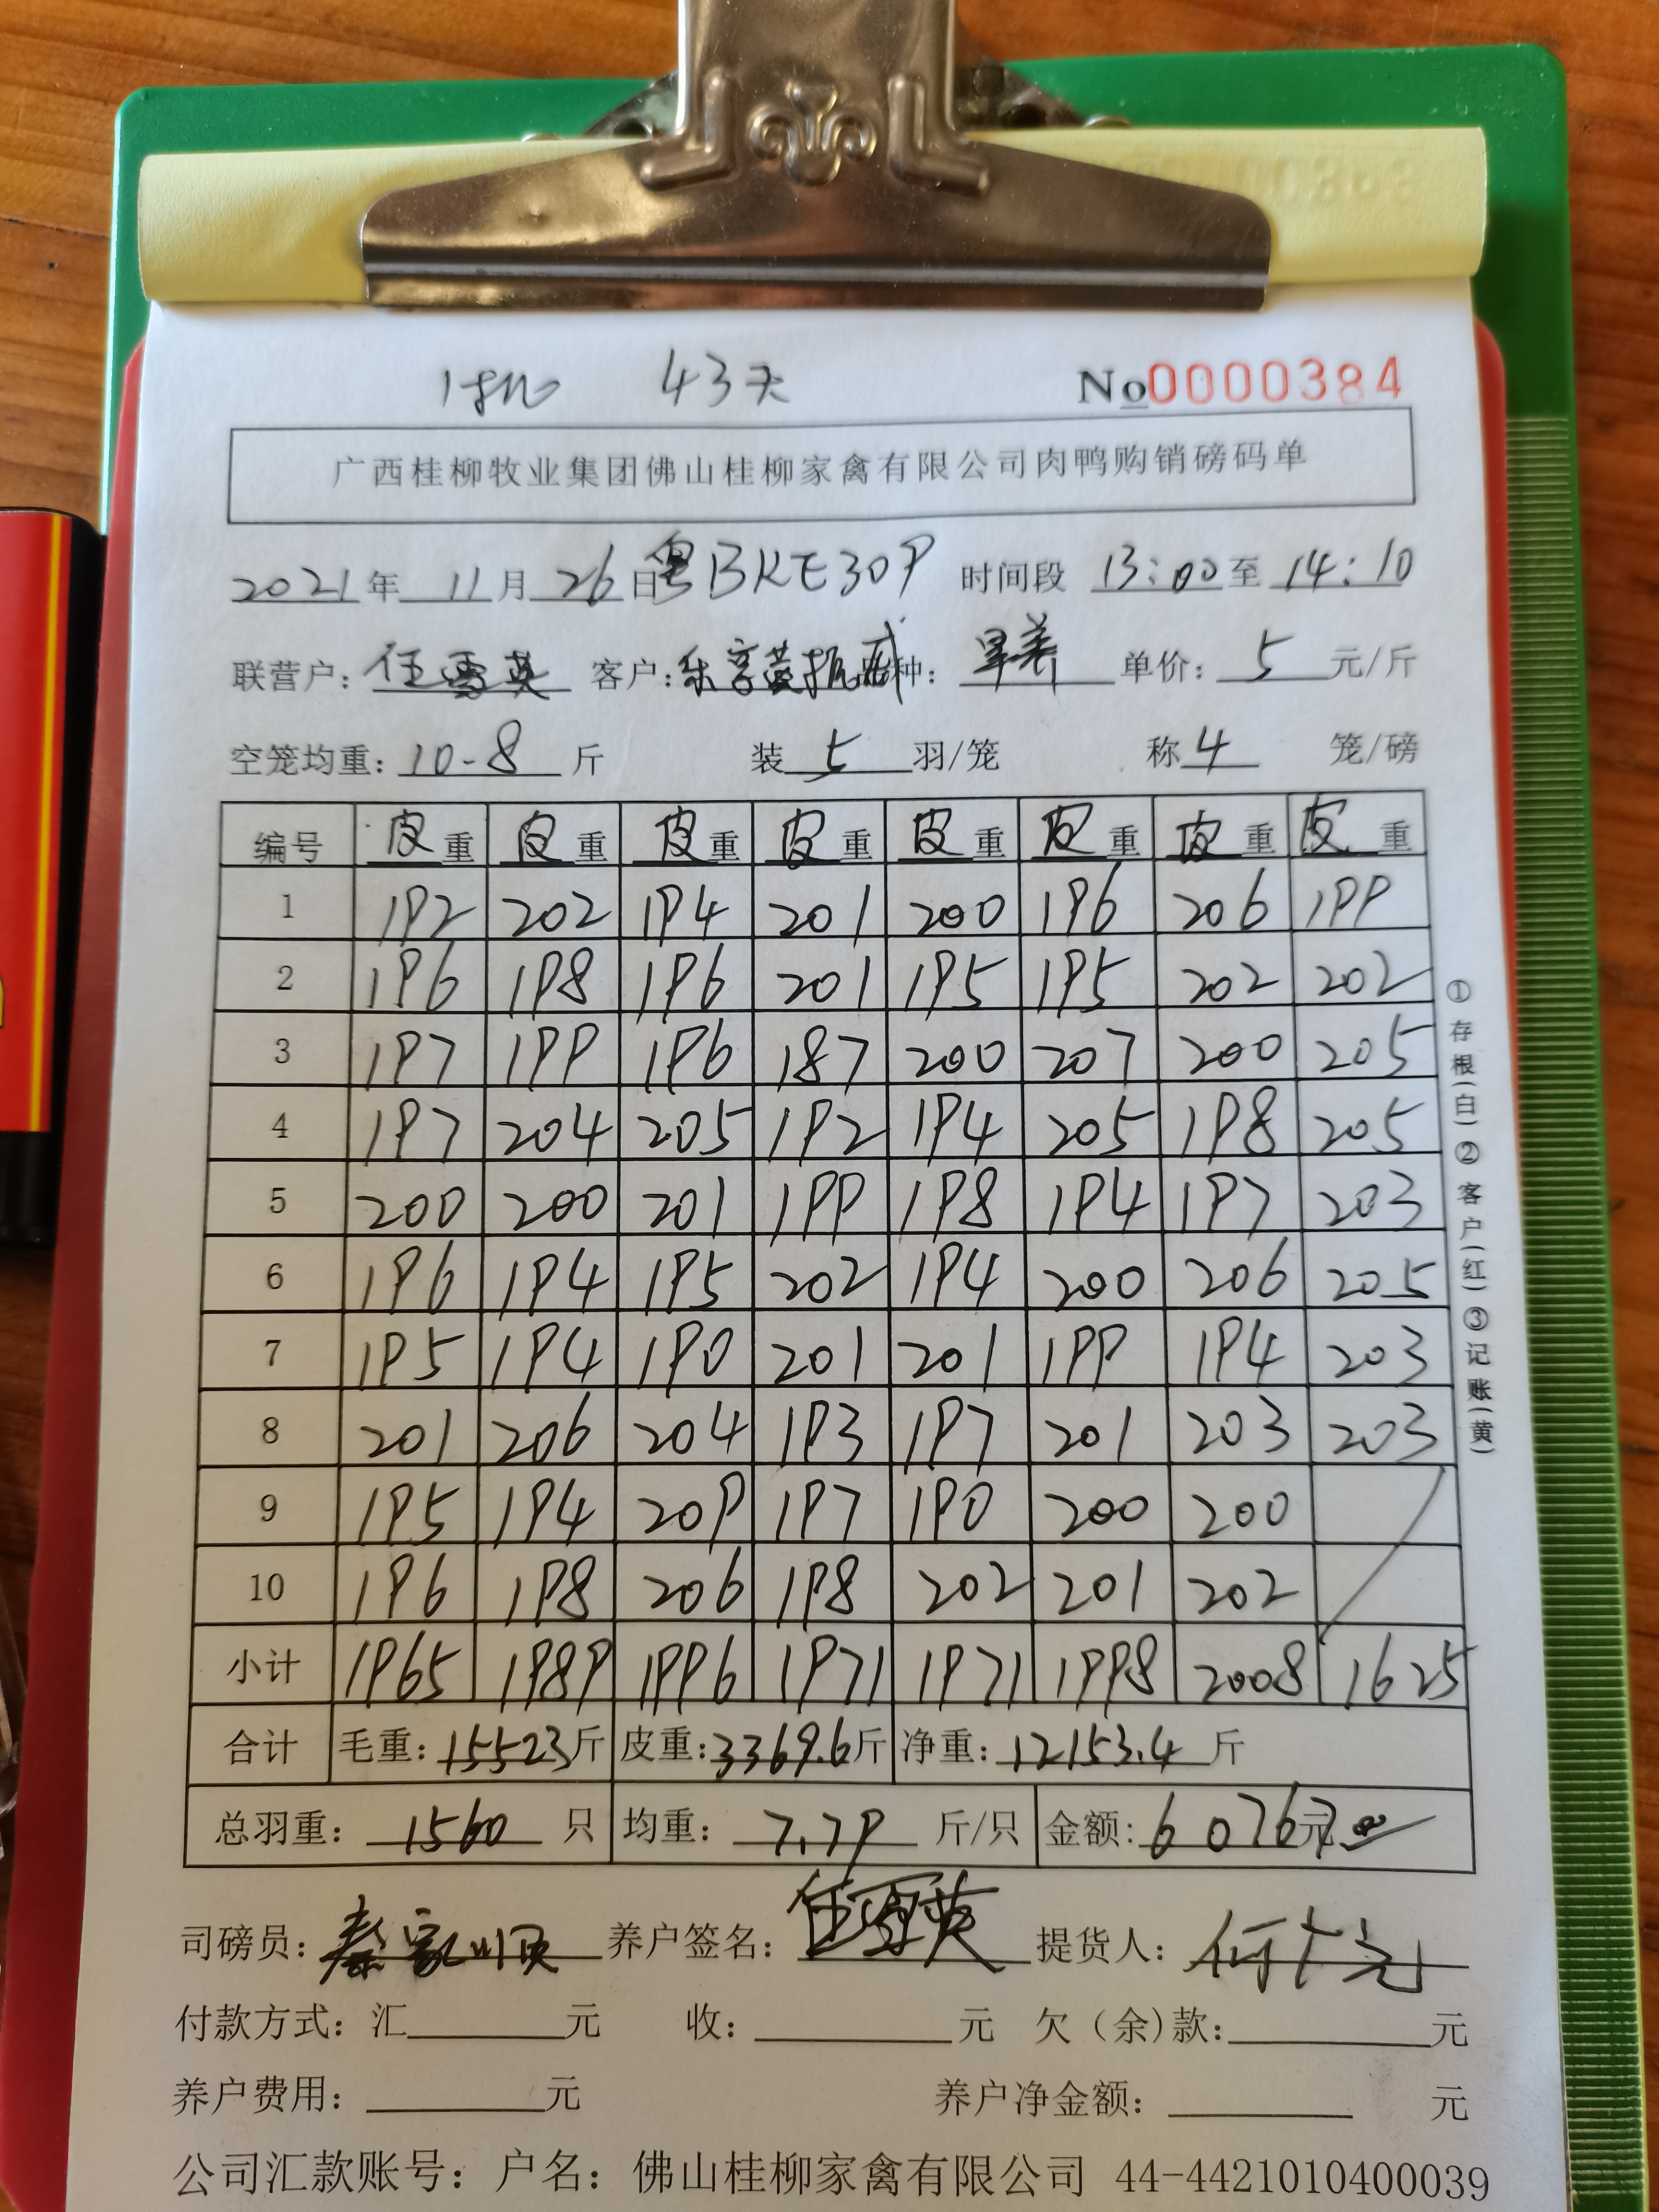 43天 No0000384
广西桂柳牧业集团佛山桂柳家禽有限公司肉鸭购销磅码单
2021年11月26日粤BKE309 时间段 13:00至14:10
联营户:任雪英 客户: 种:旱养 单价:5元/斤
空笼均重:10-8斤 装5羽/笼 称4笼/磅
编号 皮重 皮重 皮重 皮重 皮重 皮重 皮重 皮重
1 192 202 194 201 200 196 206 199
2 196 198 196 201 195 195 202 202
3 197 199 196 187 200 207 200 205
4 197 204 205 192 194 205 198 205
5 200 200 201 199 198 194 197 203
6 196 194 195 202 194 200 206 205
7 195 194 190 201 201 199 194 203
8 201 206 204 193 197 201 203 203
9 195 194 209 197 190 200 200
10 196 198 206 198 202 201 202
小计 1965 1989 1996 1971 1971 1998 2008 1625
合计 毛重:15523斤 皮重:3369.6斤 净重:12153.4斤
总羽重:1560只 均重:7.79斤/只 金额:60767元00
司磅员:秦家顺 养户签名:任雪英 提货人:
付款方式:汇 元 收: 元 欠(余)款: 元
养户费用: 元 养户净金额: 元
公司汇款账号:户名:佛山桂柳家禽有限公司 44-4421010400039
①存根(白)②客户(红)③记账(黄)